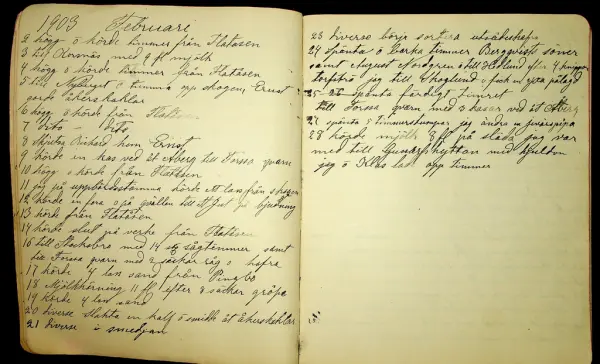 1903 Februari
2 högg o hörde timmer från Flatåsen
3 till Hornnäs med 9 ft mjölk
4 högg o hörde timmer från Flatåsen
5 till Nyberget o timma opp skogen Ernst
gorde åkerskaklar
6 högg o hörde från Flatåsen
7 Dito Dito
8 Richard hem Ernst
9 hörde en kas ved åt Åberg till Forssa quarn
10 högg o hörde från Flatåsen
11 jag på uppbördsstämma hörde ett lass från skogen
12 hörde in fora o på qvällen till på bjudning
13 hörde från Flatåsen
14 hörde slut på verke från Flatåsen
16 till Stockobro med 14 sågtimmer samt
till Forssa quarn med 2 säckar råg o hafra
17 hörde 4 lass sand från Pingbo
18 Mjölkhörning 11 ft efter 2 säckar gröpe
19 hörde 4 lass sand
20 diverse slakta en kalf o smidde åt åkerskaklar
21 diverse i smedjan
23 diverse börja sortera utsädeshafra
24 spänta o barka timmer Bergqvists söner
samt August Nordgren till Hedlund efter 4
jag till Skoglund o fick en ypa pålagd
25-26 spänta färdigt timret
till Forssa quarn med 2 kasar ved åt Åberg
27 spänta 5 timmerstumpar jag ändra en
28 hörde mjölk 8 ft på släda jag var
med till Gussarfshyttan med hjuldon
jag o Klas lade opp timmer